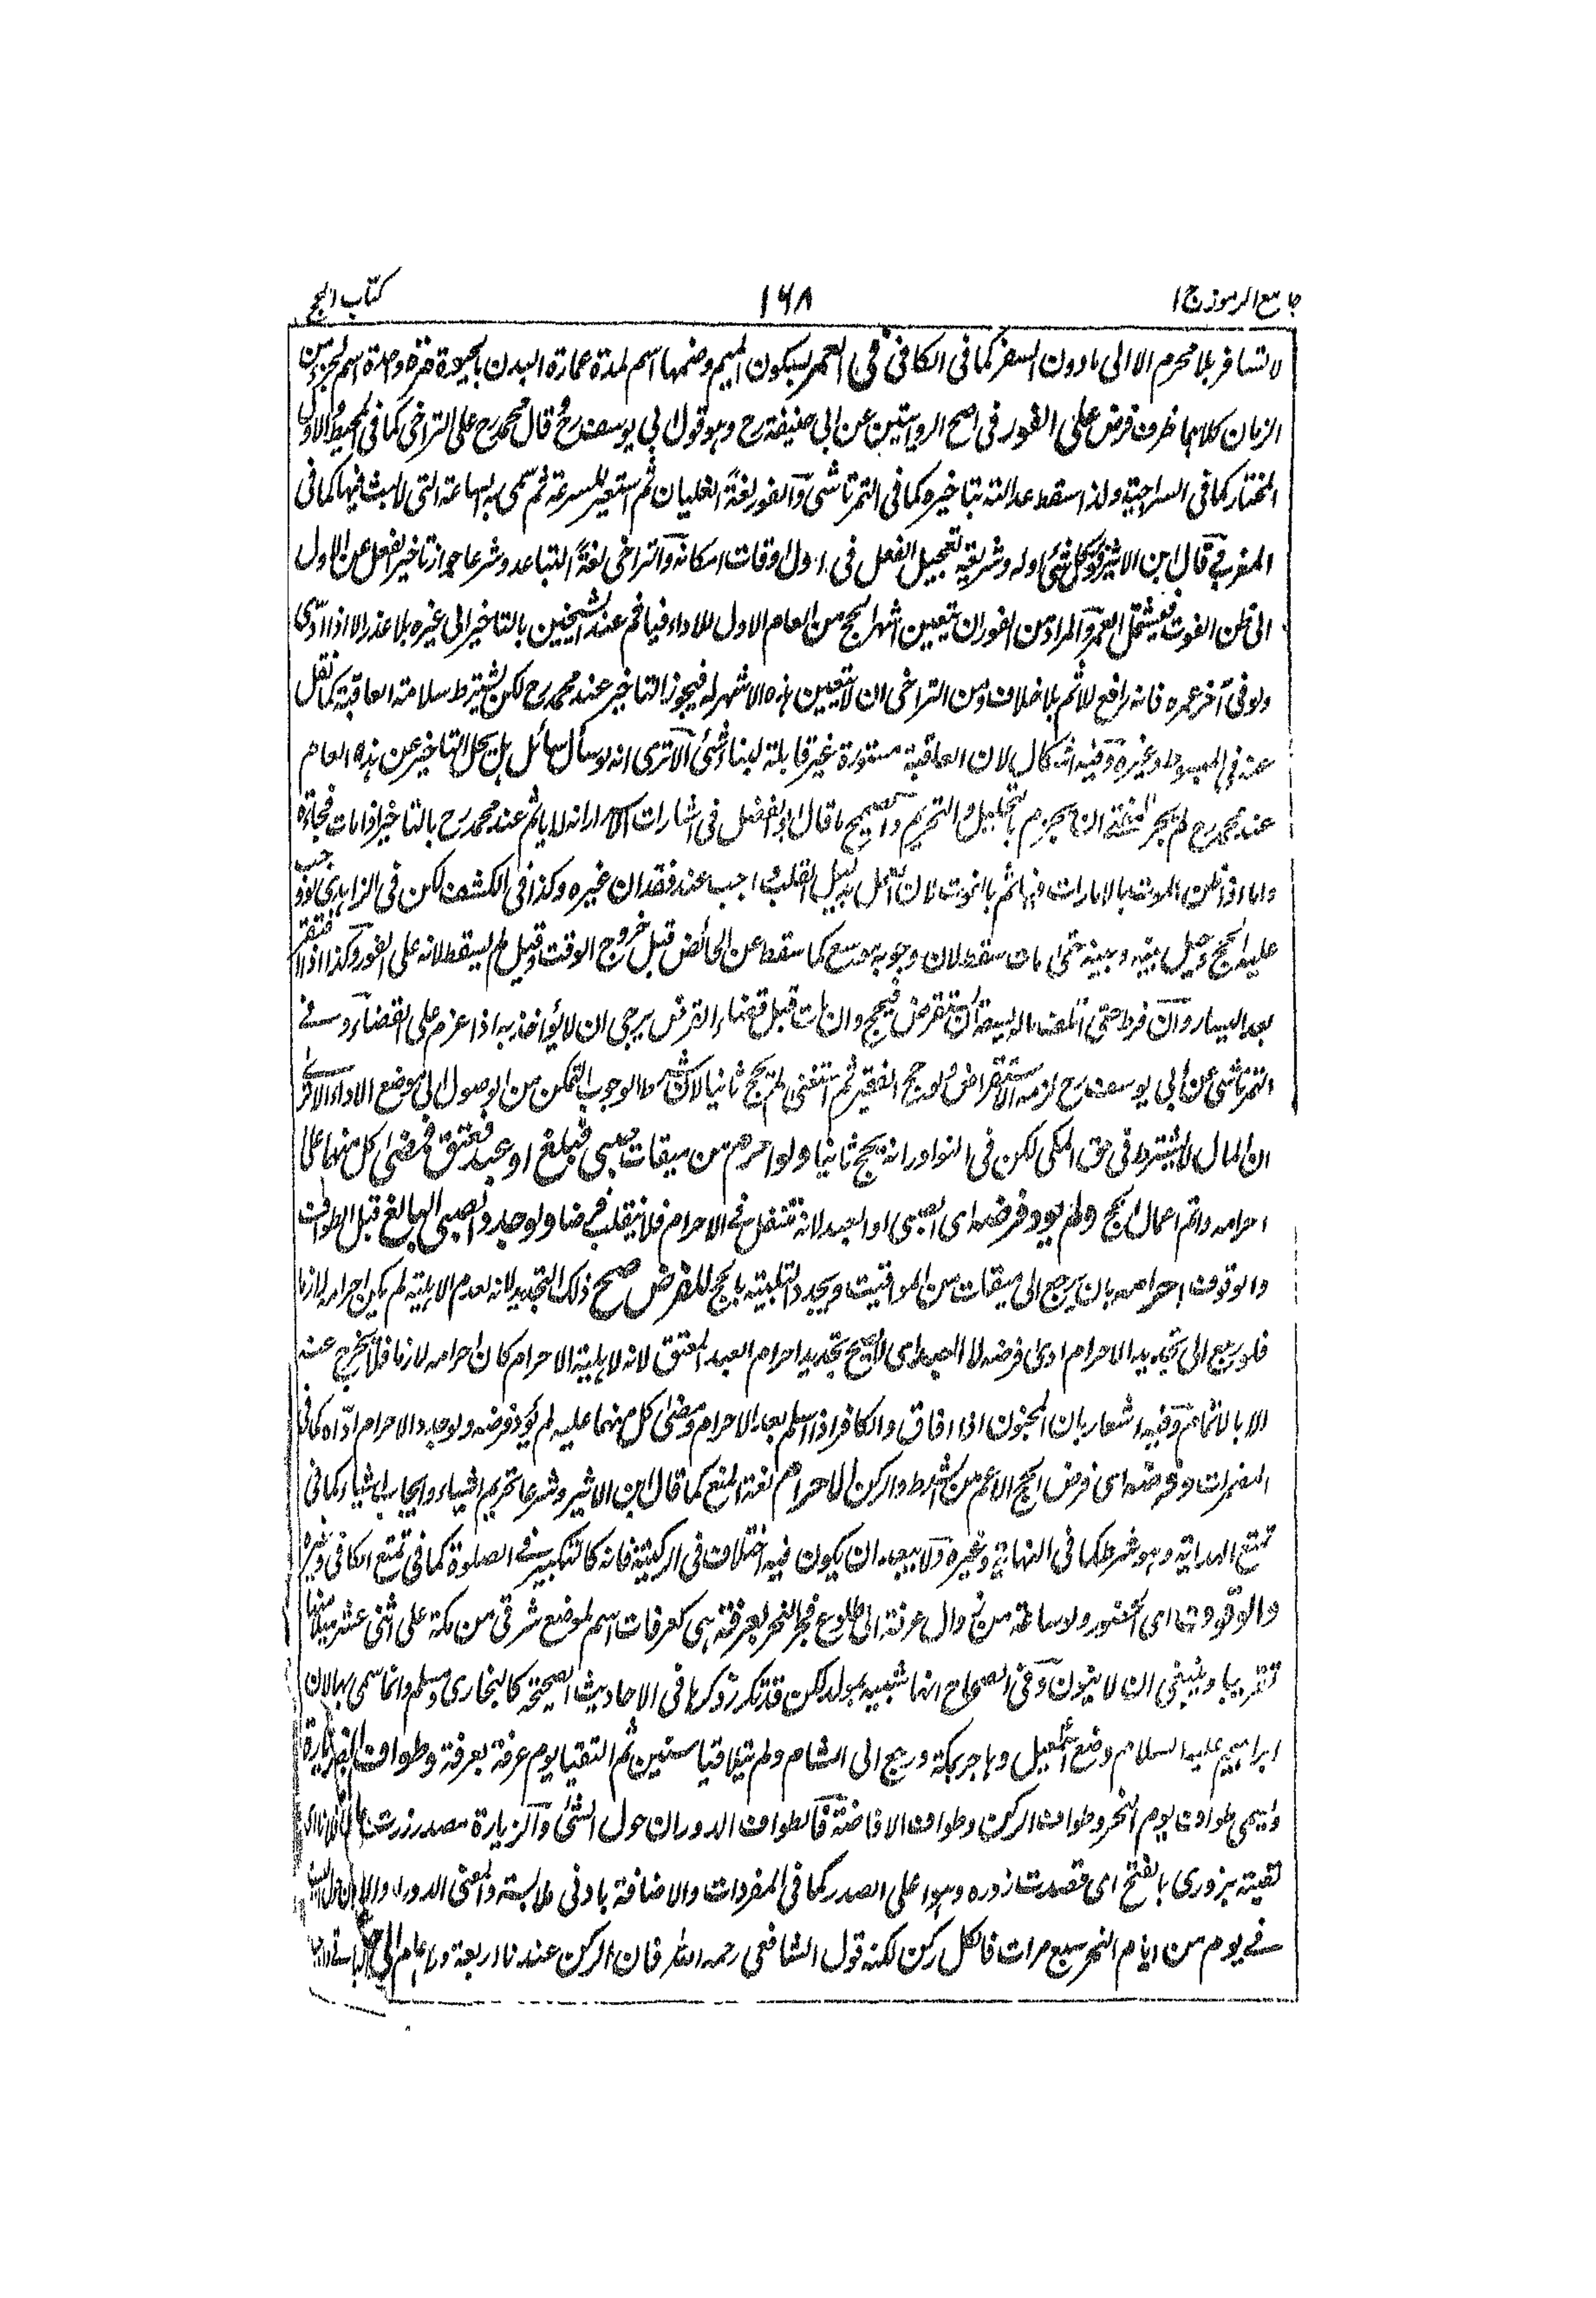 جامع الرموز ج ا
١٦٨
كتاب الحج
لا تسافر بلا محرم الا الى ما دون السفر كما في الكافي في العمر بسكون الميم وضمها اسم لمدة عمارة البدن بالحيوة مرة واحدة اسم لجزء من
الزمان كلاهما ظرف فرض على الفور في اصح الروايتين عن ابي حنيفة رح وهو قول ابي يوسف رح وقال محمد رح على التراخي كما في المحيط والاول
المختار كما في السراجية ولذا سقط عدالته بتاخيره كما في التمرتاشي والفور لغة الغليان ثم استعير للسرعة ثم سمي به الساعة التي لا لبث فيها كما في
المغرب قال ابن الاثير فور كل شئ اوله وشريعة تعجيل الفعل في اول اوقات امكانه والتراخي لغة التباعد وشرعا جواز تاخير الفعل عن الاول
الى ظن الفوت فيشتمل العمر والمراد من الفور ان يتعين اشهر الحج من العام الاول للاداء فياثم عند الشيخين بالتاخير الى غيره بلا عذر الا اذا ادى
ولو في آخر عمره فانه رافع للاثم بلا خلاف ومن التراخي ان لا يتعين هذه الاشهر له فيجوز التاخير عند محمد رح لكن يشترط سلامة العاقبة كما نقل
عنه في المبسوط وغيره وفيه اشكال لان العاقبة مستورة غير قابلة لبناء شئ الا ترى انه لو سأل سائل هل يحل التاخير عن هذه العام
عند محمد رح لم يجز ان يجزم بالتحليل والتحريم والصحيح ما قال ابو الفضل في اشارات الاسرار انه لا ياثم عند محمد رح بالتاخير اذا مات فجاءة
واما اذا ظن الموت بالامارات فياثم بالفوت لان العمل بدليل القلب واجب عند فقدان غيره وكذا في الكشف لكن في الزاهدي لو وجب
عليه الحج وحيل بينه وبينه حتى مات سقط لان وجوبه موسع كما سقط عن الحائض قبل خروج الوقت وقيل لم يسقط لانه على الفور وكذا اذا افتقر
بعد اليسار وان فرط حتى اتلف ماله يسعه ان يستقرض فيحج وان مات قبل قضاء القرض يرجى ان لا يؤاخذ به اذا عزم على القضاء وفي
التمرتاشي عن ابي يوسف رح لزمه الاستقراض ولو حج الفقير ثم استغنى لم يحج ثانيا لان شرط الوجوب التمكن من الوصول الى موضع الاداء الا ترى
ان المال لا يشترط في حق المكي لكن في النوادر انه يحج ثانيا ولو احرم من ميقات صبي فبلغ او عبد فعتق فمضى كل منهما على
احرامه واتم اعمال الحج ولم يود فرضه اي الصبي او العبد لانه تنفل في الاحرام فلا ينقلب فرضا ولو جدد الصبي البالغ قبل الطواف
والوقوف احرامه بان يرجع الى ميقات من المواقيت ويجدد التلبية بالحج للفرض صح ذلك التجديد لانه لعدم الاهلية لم يكن احرامه لازما
فلو رجع الى تجديد الاحرام ادى فرضه لا العبد اي لا يصح تجديد احرام العبد المعتق لانه لاهلية الاحرام كان احرامه لازما فلا يخرج عنه
الا بالاتمام وفيه اشعار بان المجنون اذا افاق والكافر اذا اسلم بعد الاحرام ومضى كل منهما عليه لم يؤد فرضه ولو جدد الاحرام اداه كما في
المضمرات وفرضه اي فرض الحج الاعم من الشرط والركن الاحرام لغة المنع كما قال ابن الاثير وشرعا تحريم اشياء وايجاب اشياء كما في
تمتع الهداية وهو شرط كما في النهاية وغيره ولا يبعد ان يكون فيه اختلاف في الركنية فانه كالتكبير في الصلوة كما في تمتع الكافي وغيره
والوقوف اي الحضور ولو ساعة من زوال عرفة الى طلوع فجر النحر بعرفة هي كعرفات اسم لموضع شرقي من مكة على اثنى عشر ميلا منها
تقريبا وينبغي ان لا ينون وفي الصحاح انها شبيه بمولد لكن قد تكرر ذكرها في الاحاديث الصحيحة كالبخاري ومسلم وانما سمي بها لان
ابراهيم عليه السلام وضع اسمعيل وهاجر بمكة ورجع الى الشام ولم يتلاقيا سنين ثم التقيا يوم عرفة بعرفة وطواف الزيارة
ويسمى طواف يوم النحر وطواف الركن وطواف الافاضة فالطواف الدوران حول الشئ والزيارة مصدر زرت فلانا اي
لقيته بزوري بالفتح اي قصدت زوره وهو اعلى الصدر كما في المفردات والاضافة بادنى ملابسة والمعنى الدوران حول البيت
في يوم من ايام النحر سبع مرات فالكل ركن لكنه قول الشافعي رحمه الله فان الركن عندنا اربعة